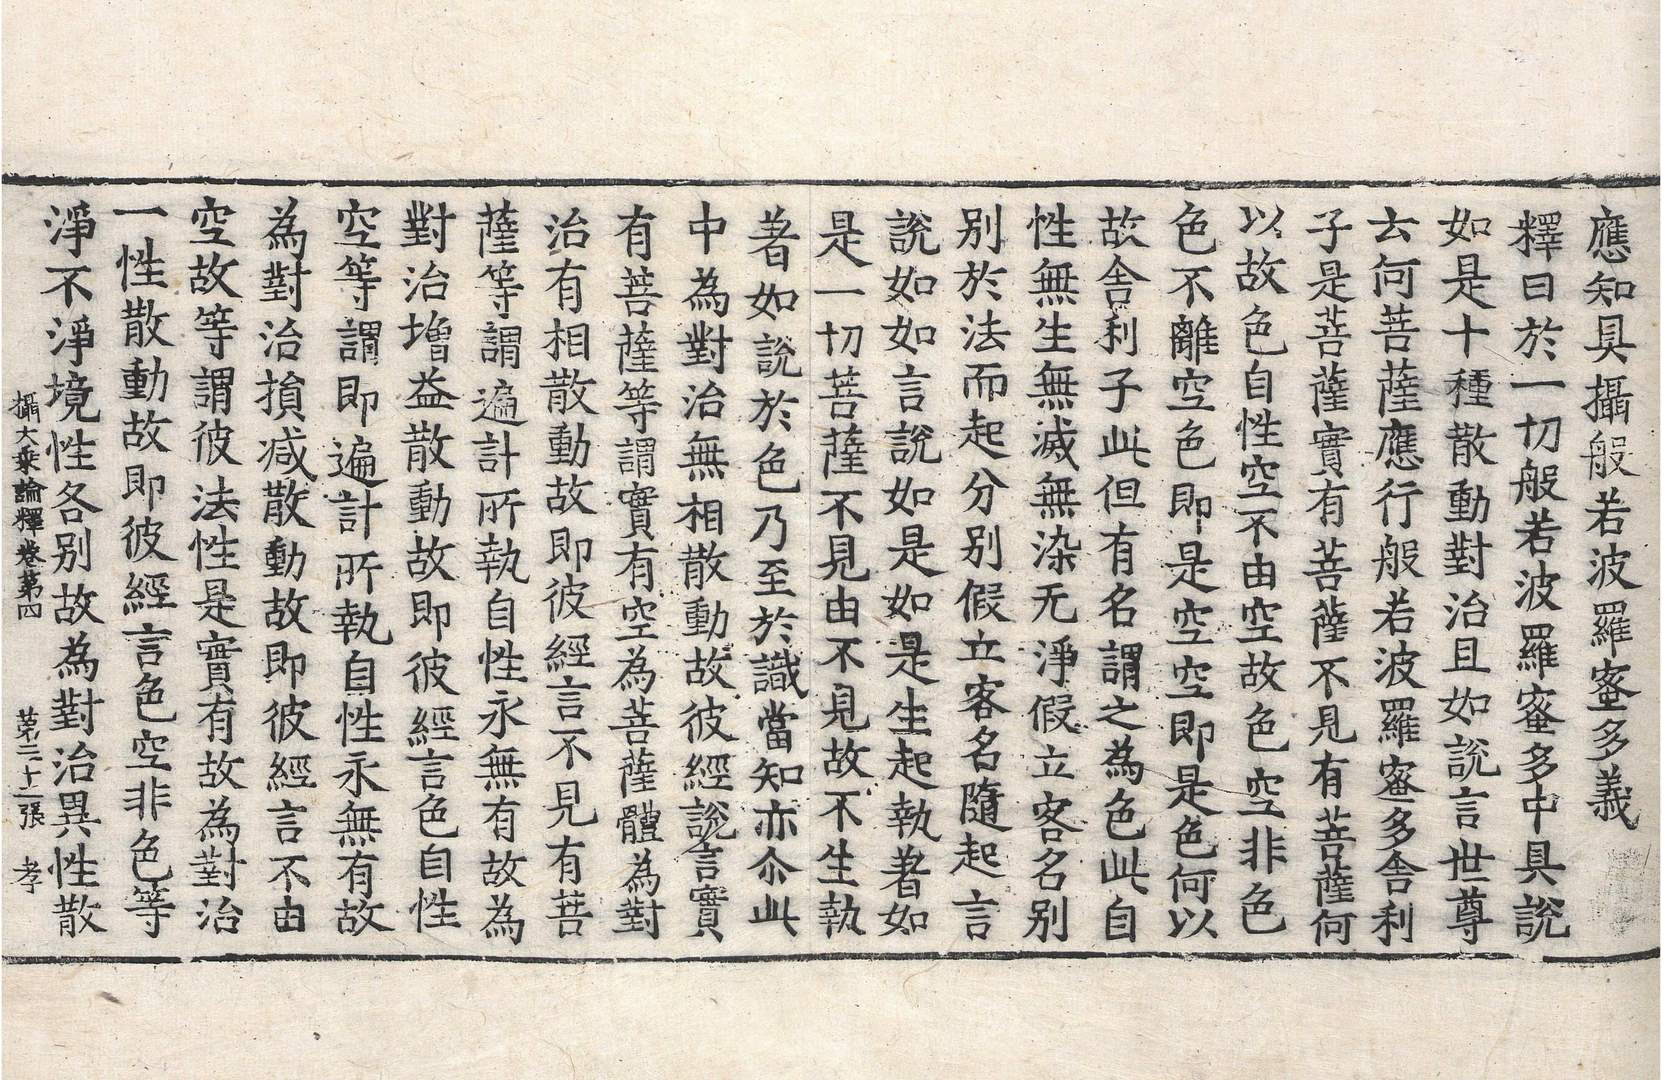 應知具攝般若波羅蜜多義
釋曰於一切般若波羅蜜多中具說
如是十種散動對治且如說言世尊
云何菩薩應行般若波羅蜜多舍利
子是菩薩實有菩薩不見有菩薩何
以故色自性空不由空故色空非色
色不離空色即是空空即是色何以
故舍利子此但有名謂之為色此自
性無生無滅無染无淨假立客名別
別於法而起分別假立客名隨起言
說如如言說如是如是生起執著如
是一切菩薩不見由不見故不生執
著如說於色乃至於識當知亦尒此
中為對治無相散動故彼經說言實
有菩薩等謂實有空為菩薩體為對
治有相散動故即彼經言不見有菩
薩等謂遍計所執自性永無有故為
對治增益散動故即彼經言色自性
空等謂即遍計所執自性永無有故
為對治損减散動故即彼經言不由
空故等謂彼法性是實有故為對治
一性散動故即彼經言色空非色等
淨不淨境性各別故為對治異性散
攝大乘論釋卷第四　第二十一張　孝